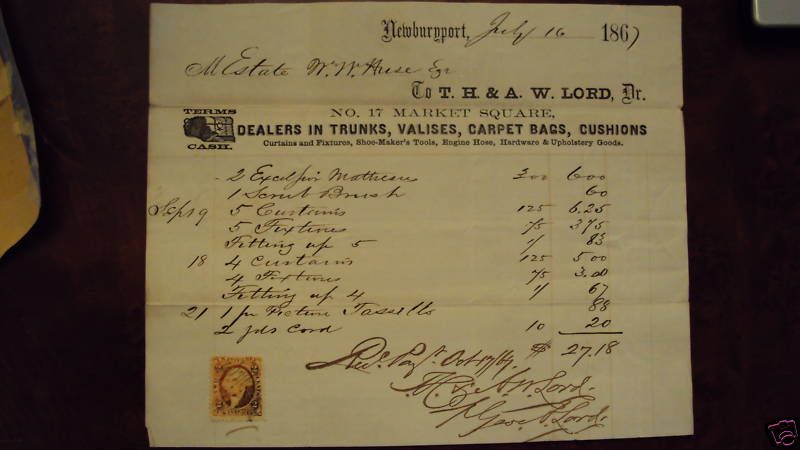 Newburyport, July 16 1867
M Estate Wm. W. Huse Esqr
To T. H. & A. W. LORD, Dr.
NO. 17 MARKET SQUARE,
TERMS CASH.
DEALERS IN TRUNKS, VALISES, CARPET BAGS, CUSHIONS
Curtains and Fixtures, Shoe-Maker's Tools, Engine Hose, Hardware & Upholstery Goods.
2 Excelsior 3 00 6 00
1 Scrub Brush 60
Sept 9 5 Curtains 125 6.25
5 Fixtures 75 375
Fitting up 5 1/ 83
18 4 Curtains 125 5 00
4 Fixtures 75 3.00
Fitting up 4 1/ 67
21 1 pr Picture Tassells 88
2 yds Cord 10 20
Recd. Payt. Oct 17/67 $ 27.18
T.H. & A.W. Lord.
Geo. A. Lord.